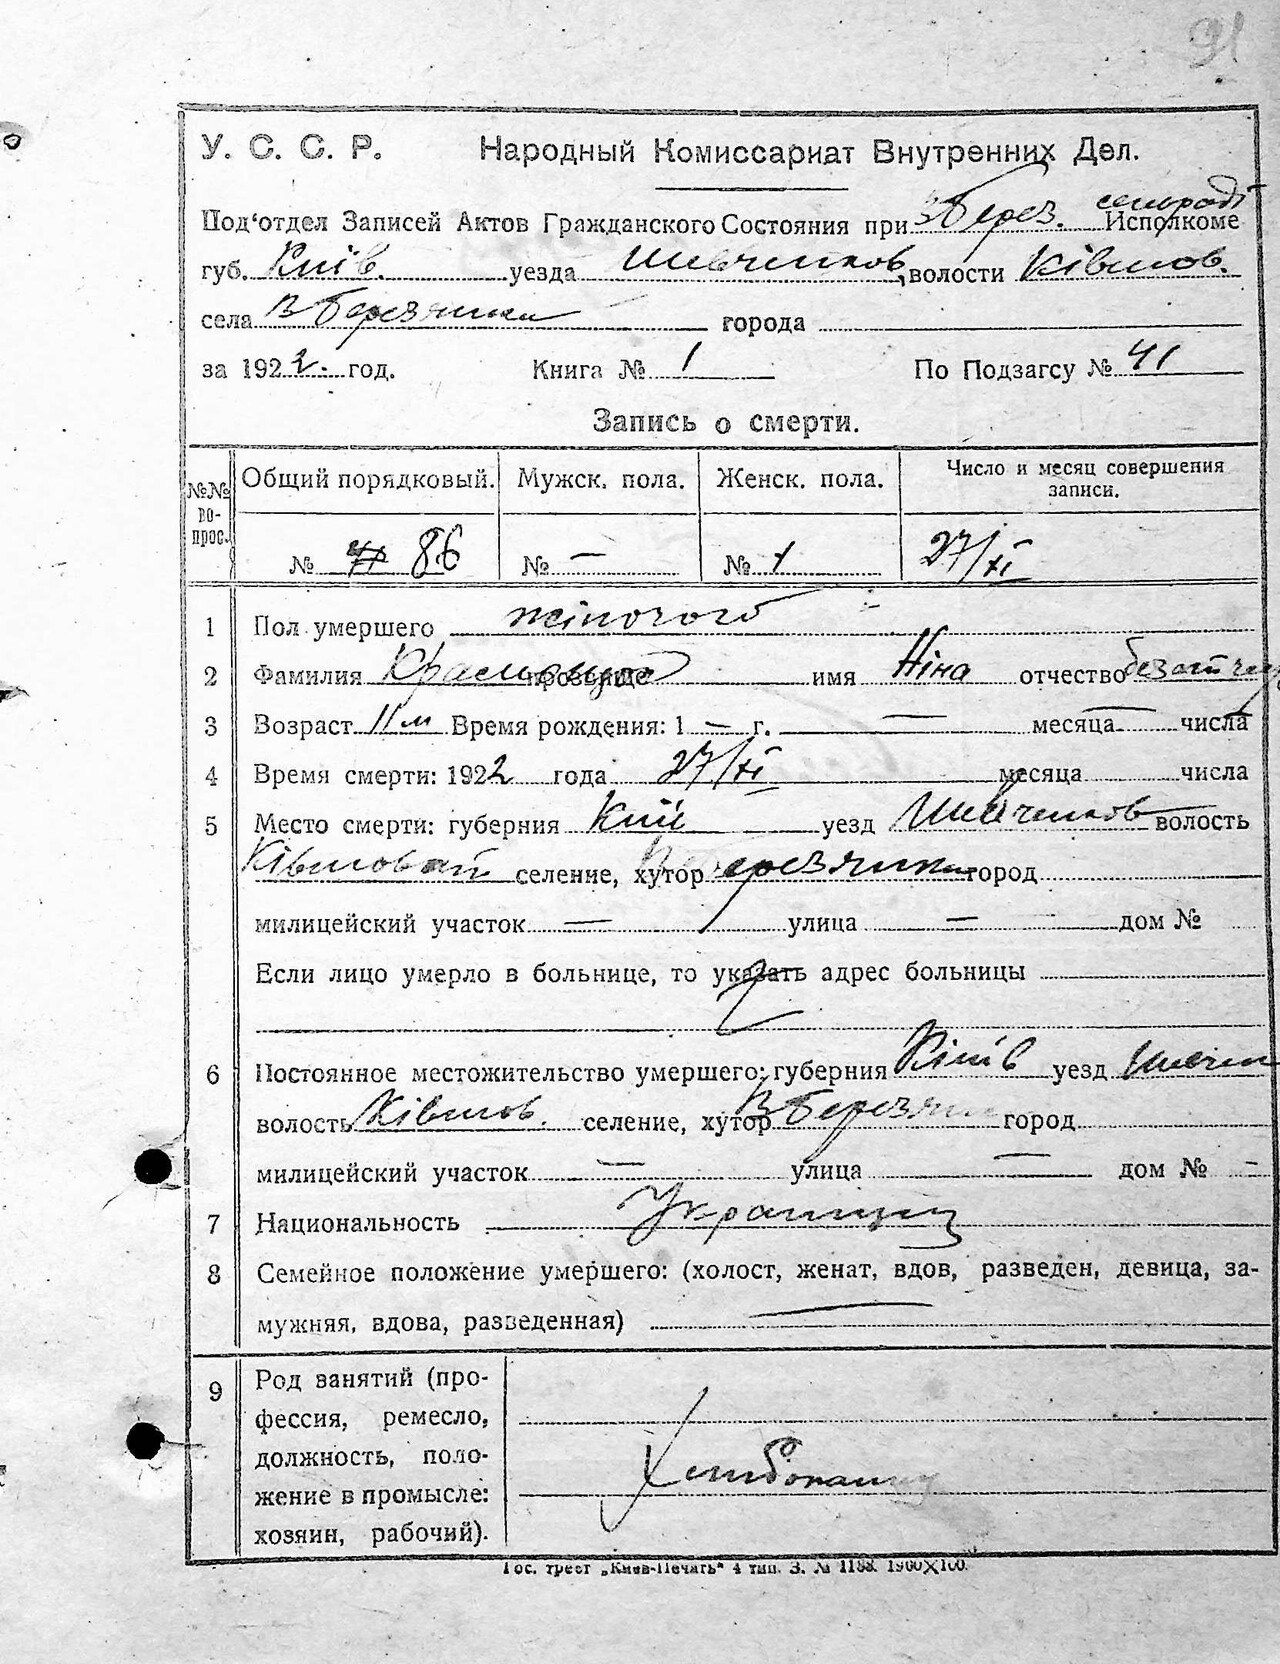 91
У. С. С. Р. Народный Комиссариат Внутренних Дел.
Под'отдел Записей Актов Гражданского Состояния при В Берез. сельраді Исполкоме
губ. Київ. уезда Шевченков. волости Ківшов.
села В Березянка города
за 1922. год. Книга № 1 По Подзагсу № 41
Запись о смерти.
№№ во-прос. Общий порядковый. Мужск. пола. Женск. пола. Число и месяц совершения записи.
№ 86 № — № 1 27/XI
1 Пол умершего жіночого
2 Фамилия прозвище имя Ніна отчество
3 Возраст 11 м Время рождения: 1 — г. — месяца — числа
4 Время смерти: 1922 года 27/XI месяца числа
5 Место смерти: губерния Київ уезд Шевченков волость
Ківшоват селение, хутор В Березянка город
милицейский участок — улица — дом №
Если лицо умерло в больнице, то указать адрес больницы
6 Постоянное местожительство умершего: губерния Київ уезд Шевчен
волость Ківшов. селение, хутор В Березян город
милицейский участок — улица — дом № —
7 Национальность
8 Семейное положение умершего: (холост, женат, вдов, разведен, девица, за-
мужняя, вдова, разведенная) —
9 Род занятий (про-
фессия, ремесло,
должность, поло-
жение в промысле:
хозяин, рабочий).
Гос. трест „Киев-Печать" 4 тип. З. № 1188. 1900X100.